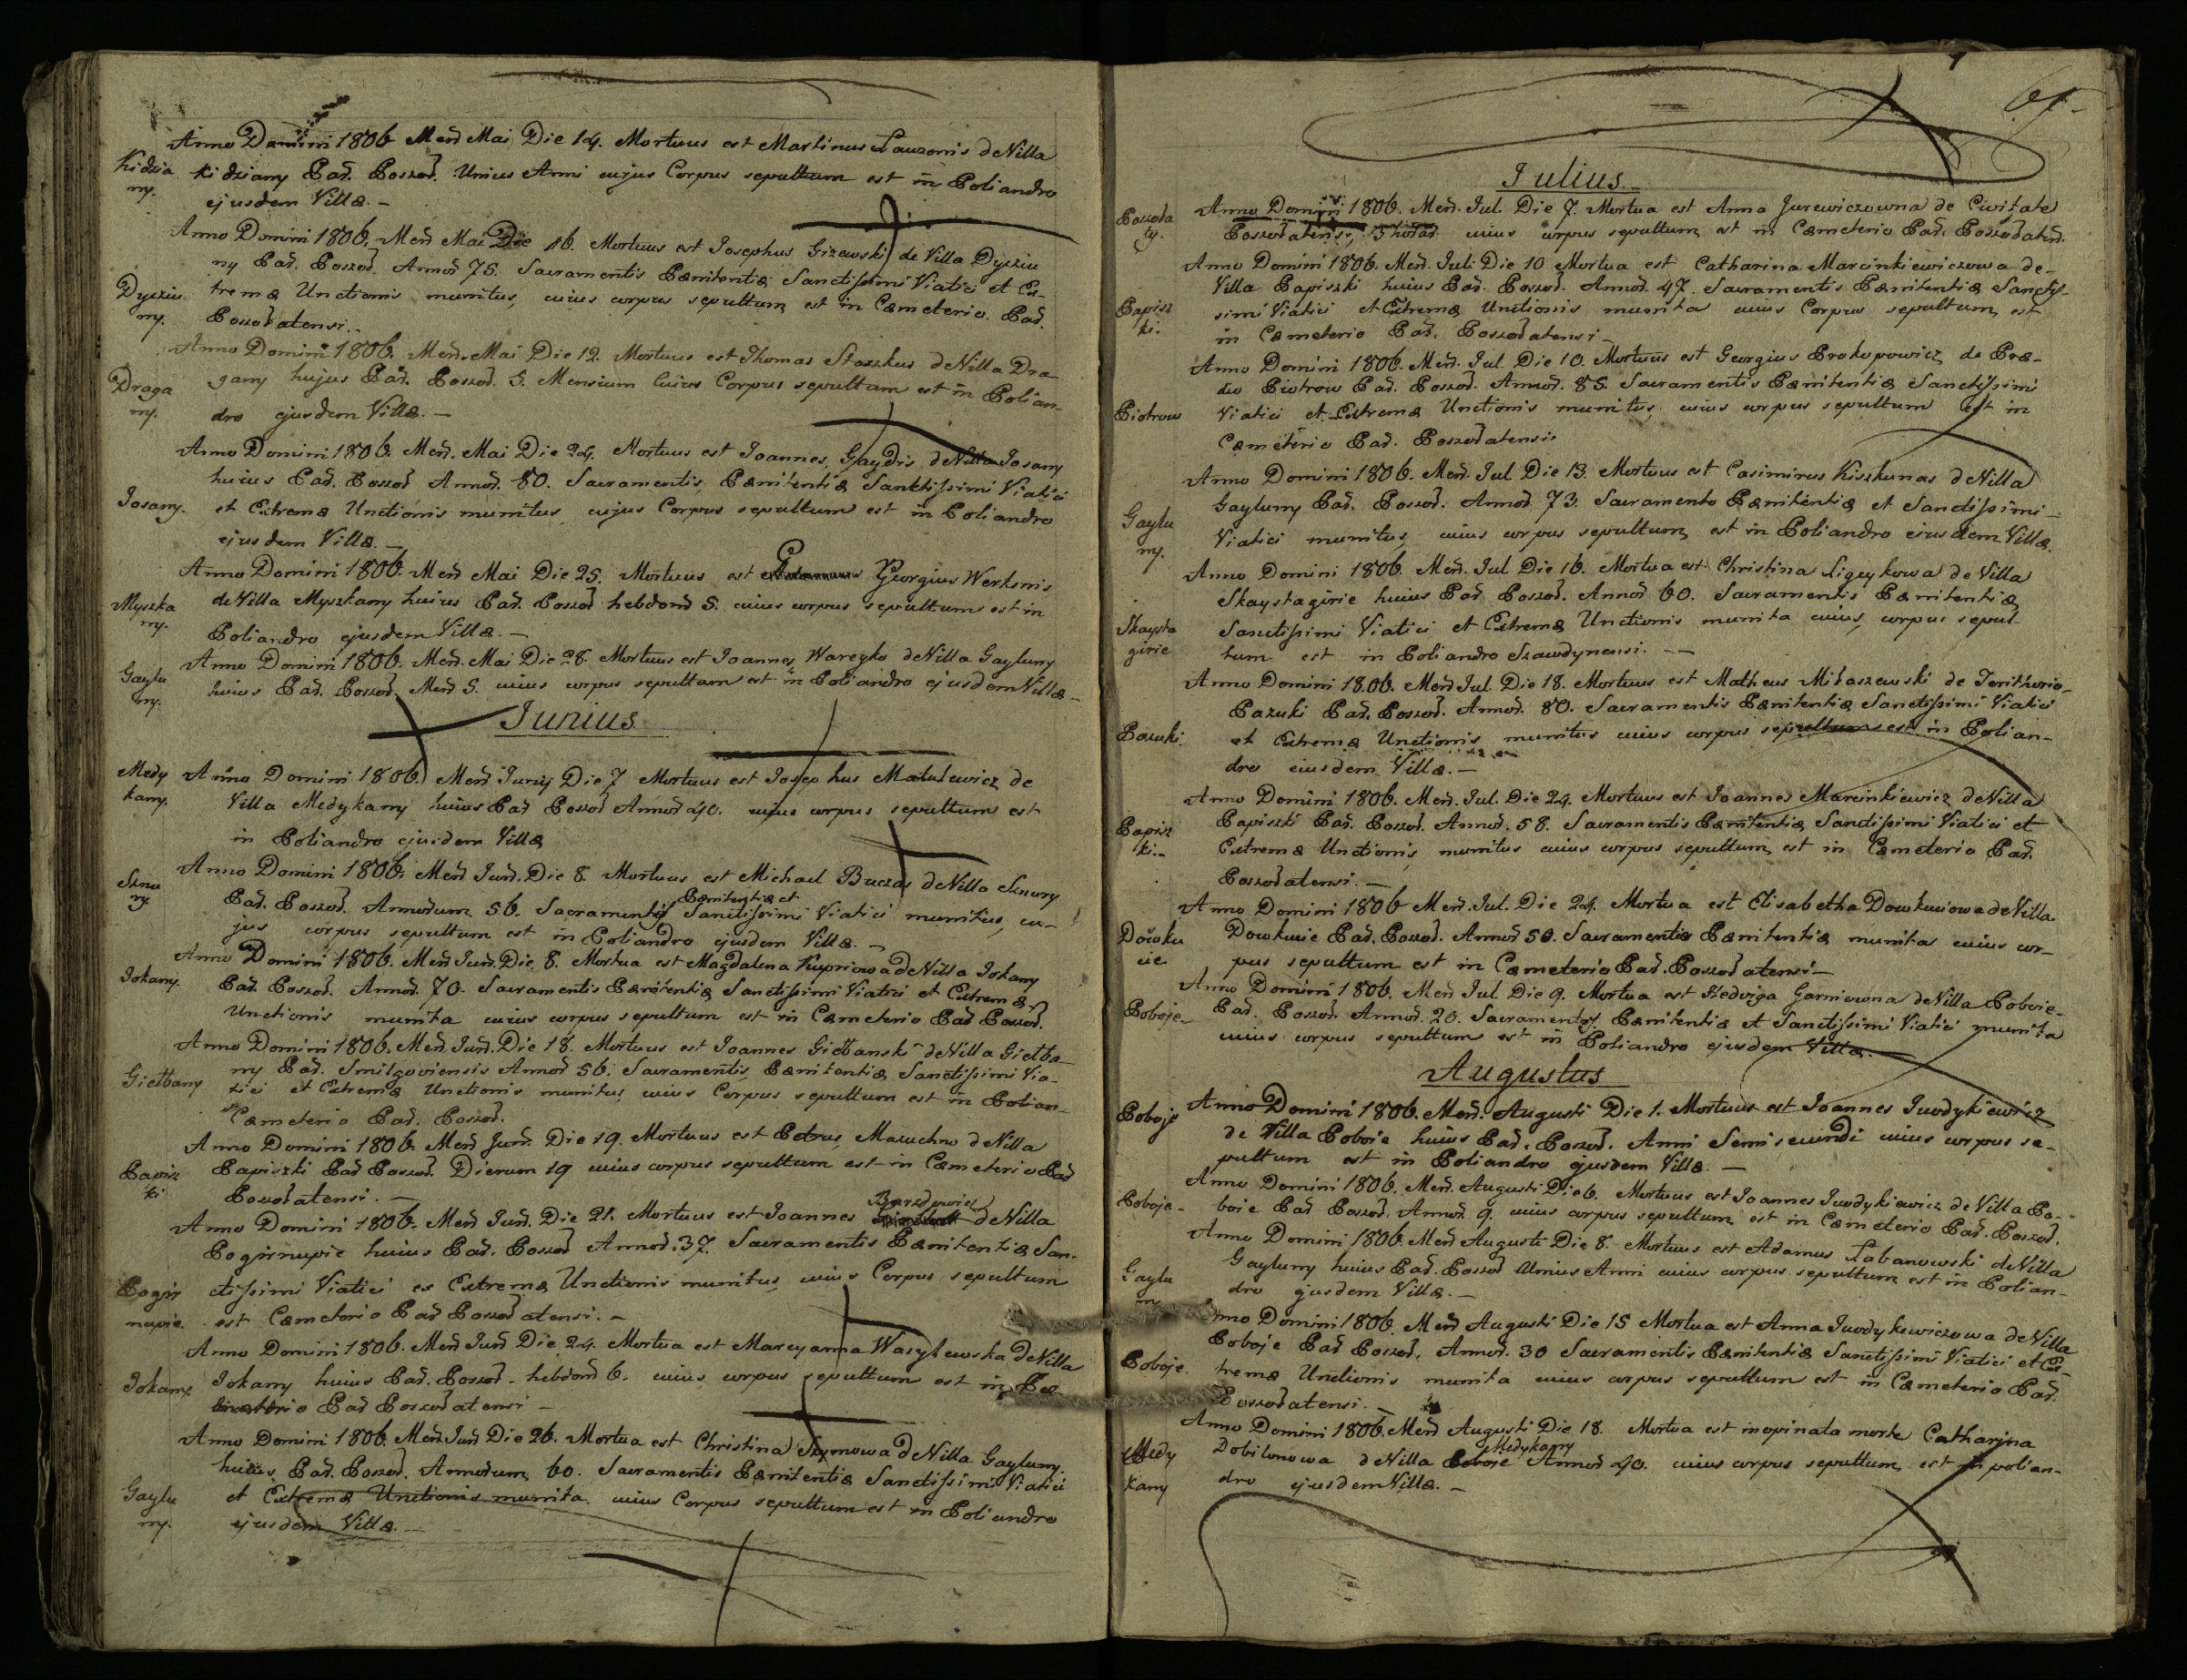 Anno Domini 1806 Mens̄ Mai Die 14. Mortuus est Martinus Lauzonis de Villa
Kidzia
ny.
Kidziany Par̄. Poszod̄. Unius Anni cujus Corpus sepultum est in Poliandro
ejusdem Villæ. —
Anno Domini 1806. Mens̄ Mai Die 16. Mortuus est Josephus Gizewski de Villa Dyrziu
ny Par̄. Poszod̄. Annor̄ 75. Sacramentis Pænitentiæ Sanctissimi Viatici et Ex-
Dyrziu
ny.
tremæ Unctionis munitus, cuius corpus sepultum est in Cæmeterio Par̄.
Poszodatensi.
Anno Domini 1806. Mens̄. Mai Die 12. Mortuus est Thomas Staszkus de Villa Dra-
Draga
ny.
gany hujus Par̄. Poszod̄. 5. Mensium Cuius Corpus sepultum est in Polian-
dro ejusdem Villæ. —
Anno Domini 1806. Mens̄. Mai Die 24. Mortuus est Joannes Gaydis de Villa Josany
huius Par̄. Poszod̄ Annor̄. 80. Sacramentis, Pænitentiæ Sanktissimi Viatici
Josany.
et Extremæ Unctionis munitus cujus Corpus sepultum est in Poliandro
ejusdem Villæ. —
Anno Domini 1806. Mens̄ Mai Die 25. Mortuus est Georgius Werksnis
Myszka
ny.
de Villa Myszkany huius Par̄. Poszod̄ hebdom̄ 5. cuius corpus sepultum est in
Poliandro ejusdem Villæ. —
Anno Domini 1806. Mens̄. Mai Die 28. Mortuus est Joannes Wareyko de Villa Gayluny
Gaylu
ny.
huius Par̄. Poszod̄. Mens̄ 5. cuius corpus sepultum est in Poliandro ejusdem Villæ —
Junius
Medy
kany.
Anno Domini 1806. Mens̄ Junij Die 7 Mortuus est Josephus Matulewicz de
Villa Medykany huius Par̄ Poszod̄ Annor̄ 40. cujus corpus sepultum est
in Poliandro ejusdem Villæ
Anno Domini 1806. Mens̄ Jun̄. Die 8. Mortuus est Michael Buczas de Villa Sznury
Sznu
ry.
Pænitentiæ et
Par̄. Poszod̄. Annorum 56. Sacramentis Sanctissimi Viatici munitus, cu-
jus corpus sepultum est in Poliandro ejusdem Villæ. —
Anno Domini 1806. Mens̄ Jun̄. Die 8. Mortua est Magdalena Kupriowa de Villa Jokany
Jokany.
Par̄. Poszod̄. Annor̄. 70. Sacramentis Pænitentiæ Sanctissimi Viatici et Extremæ
Unctionis munita cuius corpus sepultum est in Cæmeterio Par̄ Poszod̄.
Anno Domini 1806. Mens̄ Jun̄. Die 18. Mortuus est Joannes Giełbanski de Villa Giełba
Giełbany
ny Par̄. Smilgoviensis Annor̄ 56. Sacramentis Pænitentiæ Sanctissimi Via-
tici et Extremæ Unctionis munitus, cuius Corpus sepultum est in Polian-
Cæmeterio Par̄. Poszod̄.
Anno Domini 1806. Mens̄ Jun̄. Die 19. Mortuus est Petrus Mazuchno de Villa
Papisz
ki
Papiszki Par̄ Poszod̄. Dierum 19 cuius corpus sepultum est in Cæmeterio Par̄
Poszodatensi. —
Barzdowicz
Anno Domini 1806. Mens̄ Jun̄. Die 21. Mortuus est Joannes de Villa
Pogirnupie huius Par̄. Poszod̄ Annor̄. 37. Sacramentis Pænitentiæ San-
Pogir
nupie.
ctissimi Viatici es Extremæ Unctionis munitus, cuius Corpus sepultum
est Cæmeterio Par̄ Poszodatensi. —
Anno Domini 1806. Mens̄ Jun̄ Die 24. Mortua est Marcyanna Wasylewska de Villa
Jokany.
Jokany huius Par̄. Poszod̄. hebdom̄ 6. cuius corpus sepultum est in Cæ
meterio Par̄ Poszodatensi —
Anno Domini 1806. Mens̄ Jun̄ Die 26. Mortua est Christina Szymowa de Villa Gayluny
huius Par̄. Poszod̄. Annorum 60. Sacramentis Pænitentiæ Sanctissimi Viatici
Gaylu
ny.
et Extremæ Unctionis munita cuius Corpus sepultum est in Poliandro
ejusdem Villæ. —
67.
Julius. —
Poszoda
ty.
Anno Domini 1806. Mens̄. Jul. Die 7. Mortua est Anna Jurewiczowna de Civitate
Poszodatensi, cuius corpus sepultum est in Cæmeterio Par̄. Poszodaten̄.
Anno Domini 1806. Mens̄. Juli Die 10 Mortua est Catharina Marcinkiewiczowa de-
Villa Papiszki huius Par̄. Poszod̄. Annor̄. 47. Sacramentis Pænitentiæ Sanctis-
Papisz
ki.
simi Viatici et Extremæ Unctionis munita cuius Corpus sepultum est
in Cæmeterio Par̄. Poszodatensi —
Anno Domini 1806. Mens̄. Jul Die 10. Mortuus est Georgius Prokopowicz de Præ-
dio Piotrow Par̄. Poszod̄. Annor̄. 85. Sacramentis Pænitentiæ Sanctissimi
Piotrow
Viatici et Extremæ Unctionis munitus, cuius corpus sepultum est in
Cæmeterio Par̄. Poszodatensi
Anno Domini 1806. Mens̄. Jul Die 13. Mortuus est Casimirus Kiszkunas de Villa
Gaylu
ny.
Gayluny Par̄. Poszod̄. Annor̄. 73. Sacramento Pænitentiæ et Sanctissimi
Viatici munitus, cuius corpus sepultum est in Poliandro eiusdem Villæ.
Anno Domini 1806. Mens̄. Jul. Die 16. Mortua est Christina Ligeykowa de Villa
Skaystagirie huius Par̄ Poszod̄. Annor̄ 60. Sacramentis Pænitentiæ
Skaysta
girie
Sanctissimi Viatici et Extremæ Unctionis munita cuius corpus sepul-
tum est in Poliandro Szawdynensi. — —
Anno Domini 1806. Mens̄ Jul. Die 18. Mortuus est Matheus Miłaszewski de Territhorio
Pazuki Par̄. Poszod̄. Annor̄. 80. Sacramentis Pænitentiæ Sanctissimi Viatici
Pazuki.
et Extremæ Unctionis munitus cuius corpus sepultum est in Polian-
dro eiusdem Villæ. —
Anno Domini 1806. Mens̄. Jul. Die 24. Mortuus est Joannes Marcinkiewicz de Villa
Papisz
ki. —
Papiszki Par̄. Poszod̄. Annor̄. 58. Sacramentis Pænitentiæ Sanctissimi Viatici et
Extremæ Unctionis munitus cuius corpus sepultum est in Cæmeterio Par̄.
Poszodatensi. —
Anno Domini 1806 Mens̄. Jul. Die 24. Mortua est Elisabetha Dowkuiowa de Villa
Dowku
cie
Dowkucie Par̄. Poszod̄. Annor̄ 50. Sacramentis Pænitentiæ munita cuius cor-
pus sepultum est in Cæmeterio Par̄. Poszodatensi —
Anno Domini 1806. Mens̄ Jul. Die 9. Mortua est Hedviga Garniewna de Villa Poboie
Poboje.
Par̄. Poszod̄. Annor̄. 20. Sacramentis Pænitentiæ et Sanctissimi Viatici munita
cuius corpus sepultum est in Poliandro ejusdem Villæ.
Augustus
Poboje
Anno Domini 1806. Mens̄. Augusti Die 1. Mortuus est Joannes Jwodykiewicz
de Villa Poboie huius Par̄. Poszod̄. Anni Semisecundi cuius corpus se-
pultum est in Poliandro ejusdem Villæ. —
Anno Domini 1806. Mens̄. Augusti Die 6. Mortuus est Joannes Jwodykiewicz de Villa Po-
Poboje —
boie Par̄ Poszod̄. Annor̄ 9. cuius corpus sepultum est in Cæmeterio Par̄. Poszod̄.
Anno Domini 1806. Mens̄ Augusti Die 8. Mortuus est Adamus Łabanowski de Villa
Gaylu
ny
Gayluny huius Par̄. Poszod̄ Unius Anni cuius corpus sepultum est in Polian-
dro ejusdem Villæ. —
Anno Domini 1806. Mens̄ Augusti Die 15 Mortua est Anna Jwodykewiczowa de Villa
Poboje
Poboje Par̄ Poszod̄. Annor̄. 30 Sacramentis Pænitentiæ Sanctissimi Viatici et Ex
tremæ Unctionis munita cuius corpus sepultum est in Cæmeterio Par̄.
Poszodatensi. —
Anno Domini 1806. Mens̄ Augusti Die 18. Mortua est inopinata morte Catharina
Medykany
Medy
kany
Dobilonowa de Villa Poboie Annor̄ 40. cuius corpus sepultum est in polian-
dro ejusdem Villæ. —